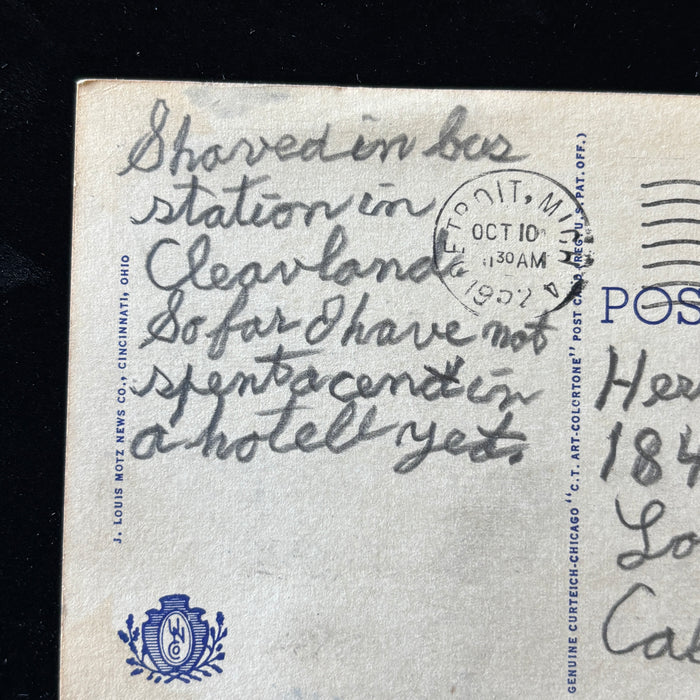 Shaved in bus
station in
Cleavland
So far I have not
spent a cent in
a hotell yet.
DETROIT, MICH.
OCT 10
30 AM
1952
J. LOUIS MOTZ NEWS CO., CINCINNATI, OHIO
GENUINE CURTEICH-CHICAGO "C.T. ART-COLORTONE" POST CARD (REG. U.S. PAT. OFF.)
POS
Her
184
Lo
Cal